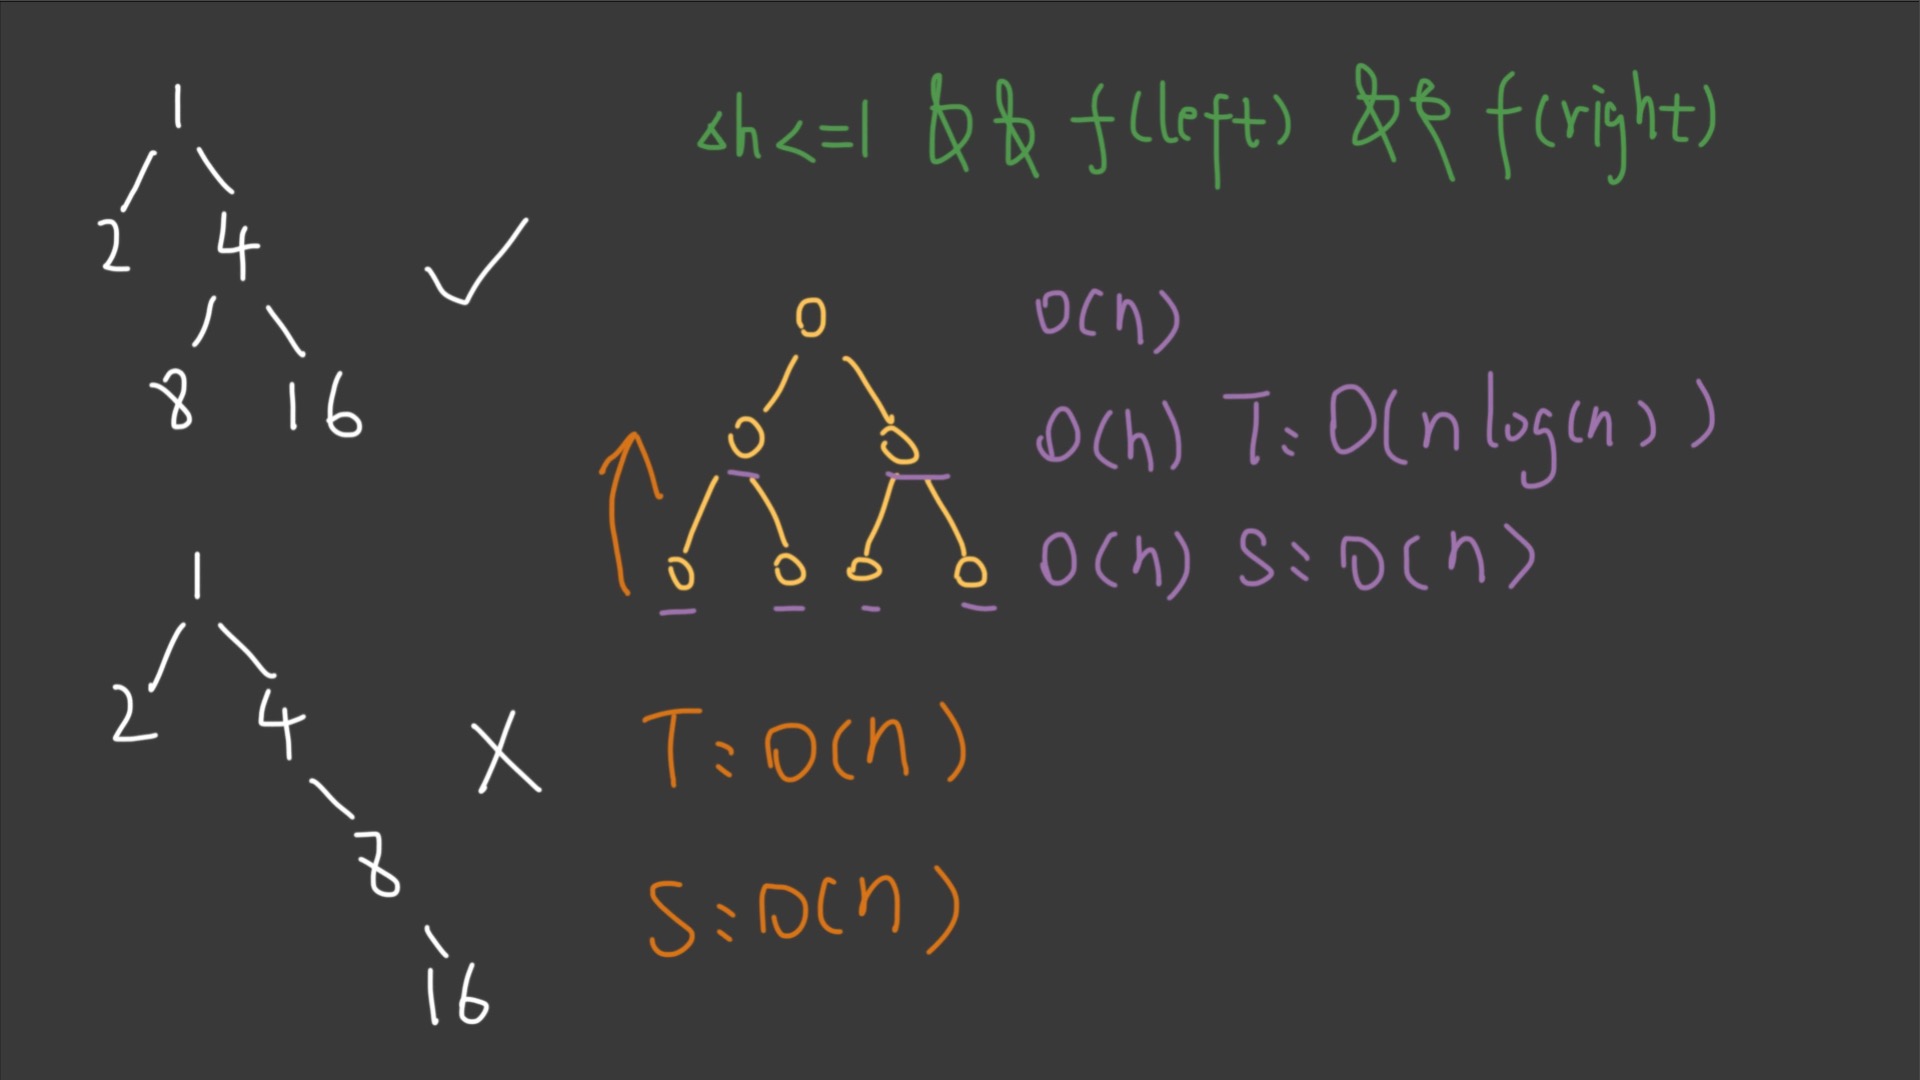 1
2 4
8 16
✓
1
2 4
8
16
X
Δh<=1 && f(left) && f(right)
O
O O
O O O O
O(n)
O(n) T: O(nlog(n))
O(n) S: O(n)
T: O(n)
S: O(n)